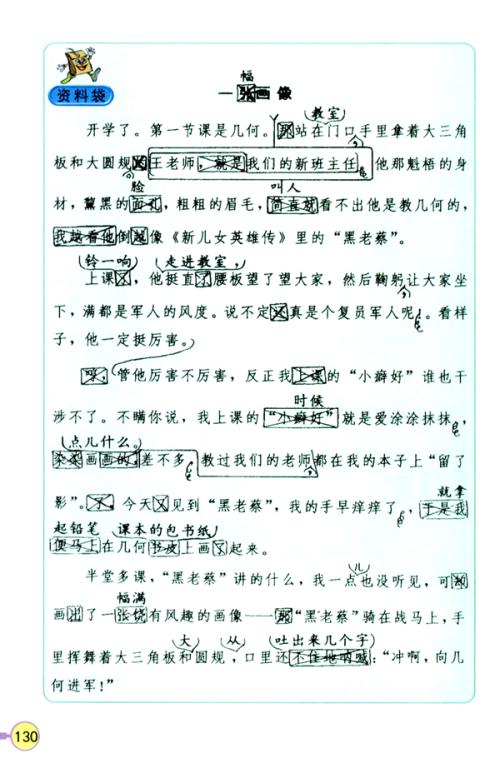 资料袋
幅
一张画像
教室
开学了。第一节课是几何。那站在门口手里拿着大三角
板和大圆规的王老师，就是我们的新班主任。他那魁梧的身
脸 叫人
材，黧黑的面孔，粗粗的眉毛，简直好看不出他是教几何的，
我越看他倒越像《新儿女英雄传》里的“黑老蔡”。
铃一响 走进教室，
上课了，他挺直了腰板望了望大家，然后鞠躬让大家坐
下，满都是军人的风度。说不定还真是个复员军人呢。看样
子，他一定挺厉害。
呀，管他厉害不厉害，反正我上课的“小癖好”谁也干
时候
涉不了。不瞒你说，我上课的“小癖好”就是爱涂涂抹抹，
点儿什么。
画画的，差不多教过我们的老师都在我的本子上“留了
就拿
影”。今天又见到“黑老蔡”，我的手早痒痒了，于是我
起铅笔 课本的包书纸
便马上在几何书皮上画了起来。
儿
半堂多课，“黑老蔡”讲的什么，我一点也没听见，可
幅满
画出了一张饶有风趣的画像——那“黑老蔡”骑在战马上，手
大 从 吐出来几个字
里挥舞着大三角板和圆规，口里还不住地呐喊：“冲啊，向几
何进军！”
130